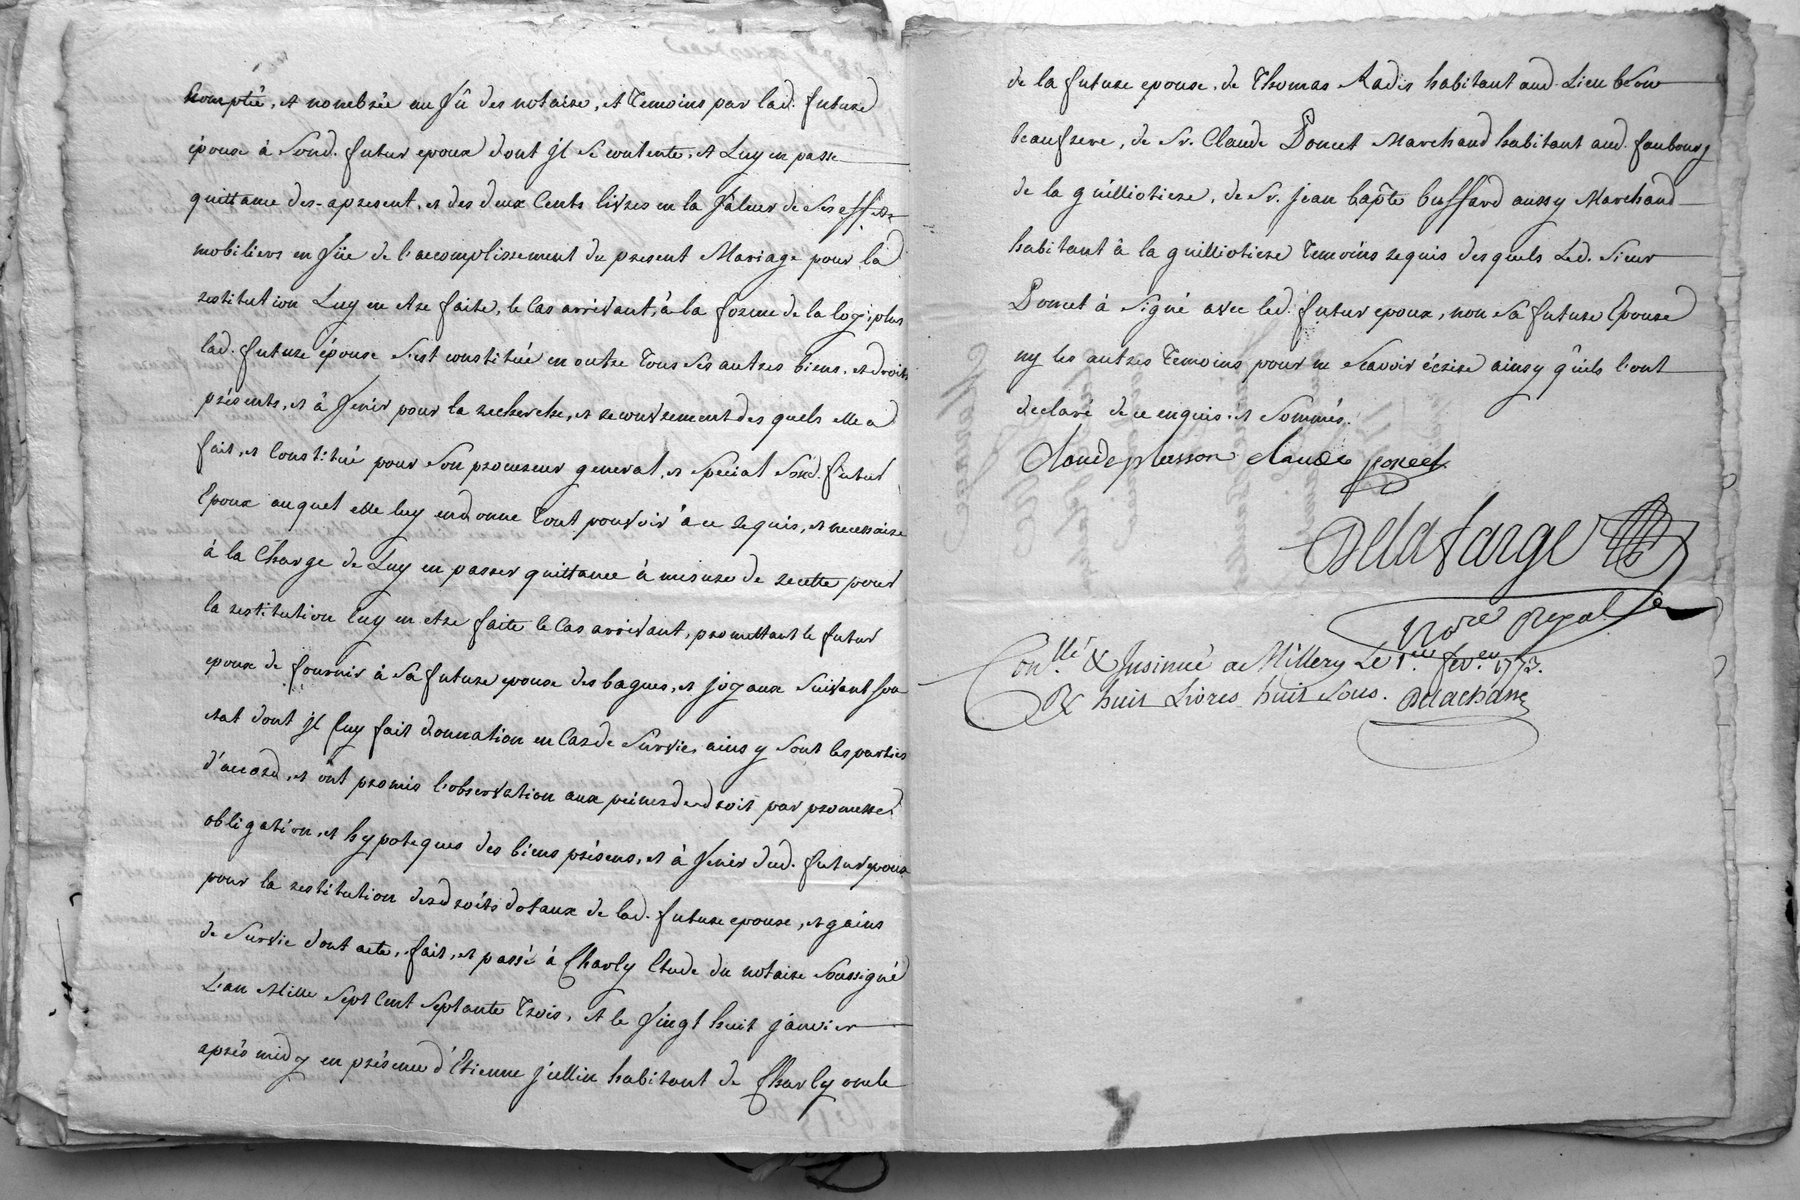 Comptée, et nombrée au Vû des notaire, et Temoins par lad. future
épouse à Sond. futur epoux dont jl se contente, et Luy en passe
quittance des-apresent, et des deux Cents livres en la Valeur de Ses effets
mobiliers en Vüe de l'accomplissement du present Mariage pour la
restitution Luy en etre faite, le Cas arrivant, à la forme de la loy, plus
lad. future épouse s'est constituée en outre Tous Ses autres biens, et droits
présents, et à Venir pour la recherche, et recouvrement des quels elle a
fait, et Constitué pour Son procureur general, et Special Sond. futur
Epoux auquel elle luy en donne Tout pouvoir à ce requis, et necessaire
à la Charge de Luy en passer quittance à mesure de recette pour
la restitution luy en etre faite le Cas arrivant, promettant le futur
epoux de fournir à Sa future epouse des bagues, et joyaux Suivant Son
etat dont jl luy fait donnation en Cas de Survie, ainsy sont les parties
d'accord, et ont promis l'observation aux peines de droit par promesse
obligation, et hypoteques des biens présens, et à Venir dud. futur epoux
pour la restitution des droits dotaux de lad. future epouse, et gains
de Survie dont acte, fait, et passé à Charly Etude du notaire Soussigné
L'an Mille Sept Cent Septante Trois, et le Vingt huit janvier
aprés midy en présence d'Etienne jullin habitant de Charly oncle
de la future epouse, de Thomas Radis habitant aud. Lieu Son
beaufrere, de Sr. Claude Poncet Marchand habitant aud. faubourg
de la guilliotiere, de Sr. jean bapte buffard aussy Marchand
habitant à la guilliotiere Temoins requis desquels Led. Sieur
Poncet à Signé avec led. futur epoux, non Sa future Epouse
ny les autres Temoins pour ne Scavoir écrire ainsy qu'ils l'ont
declaré de ce enquis, et Sommés.
Claude plusson claude poncet
Delafarge
Nore Royal
Conllé & Insinué a Millery Le 1er fevr. 1773.
R& huit Livres huit Sous. Delachasse